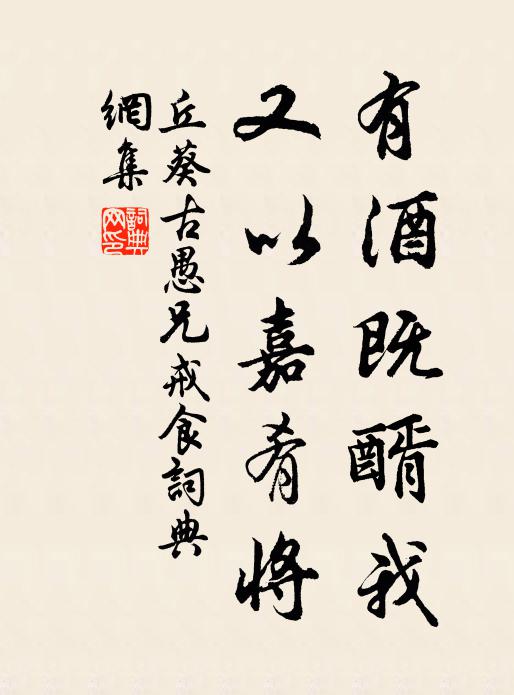 有酒既醑我
又以嘉肴將
丘葵古愚兄戒食詞典
網集
詞典網印